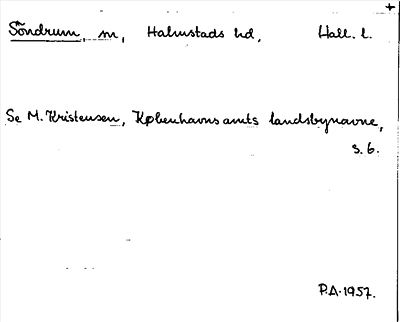 Söndrum, sn, Halmstads hd, Hall. l.
Se M. Kristensen, Københavns amts landsbynavne,
s. 6.
P.A. 1957.